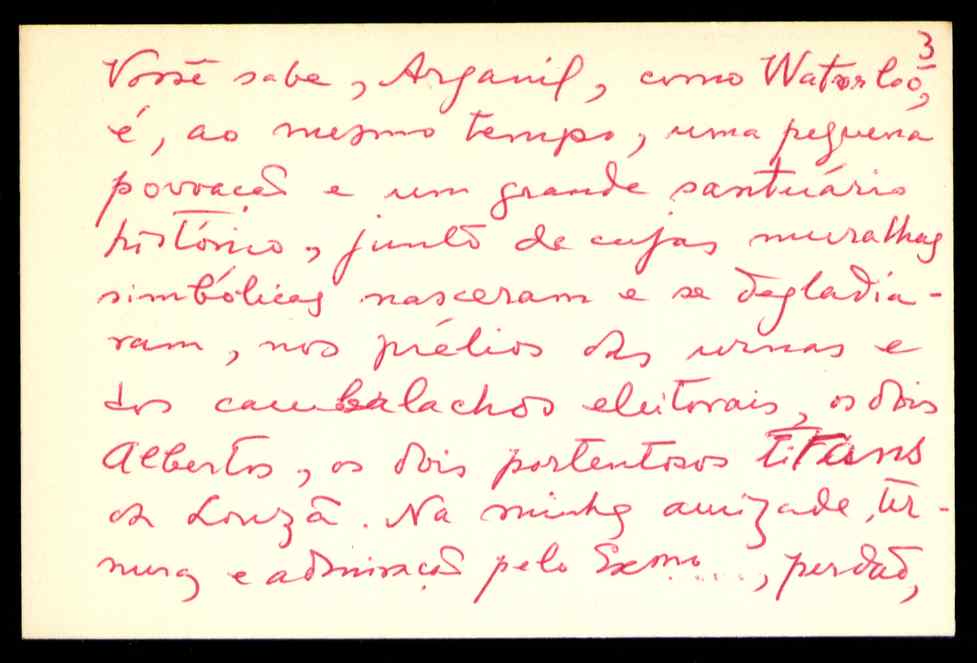 3
Você sabe, Arganil, como Waterloo,
é, ao mesmo tempo, uma pequena
povoação e um grande santuário
histórico, junto de cujas muralhas
simbólicas nasceram e se degladia-
ram, nos prélios das urnas e
dos cambalachos eleitorais, os dois
Albertos, os dois portentosos titans
da Louzã. Na minha amizade, ter-
nura e admiração pelo Exmo....., perdão,